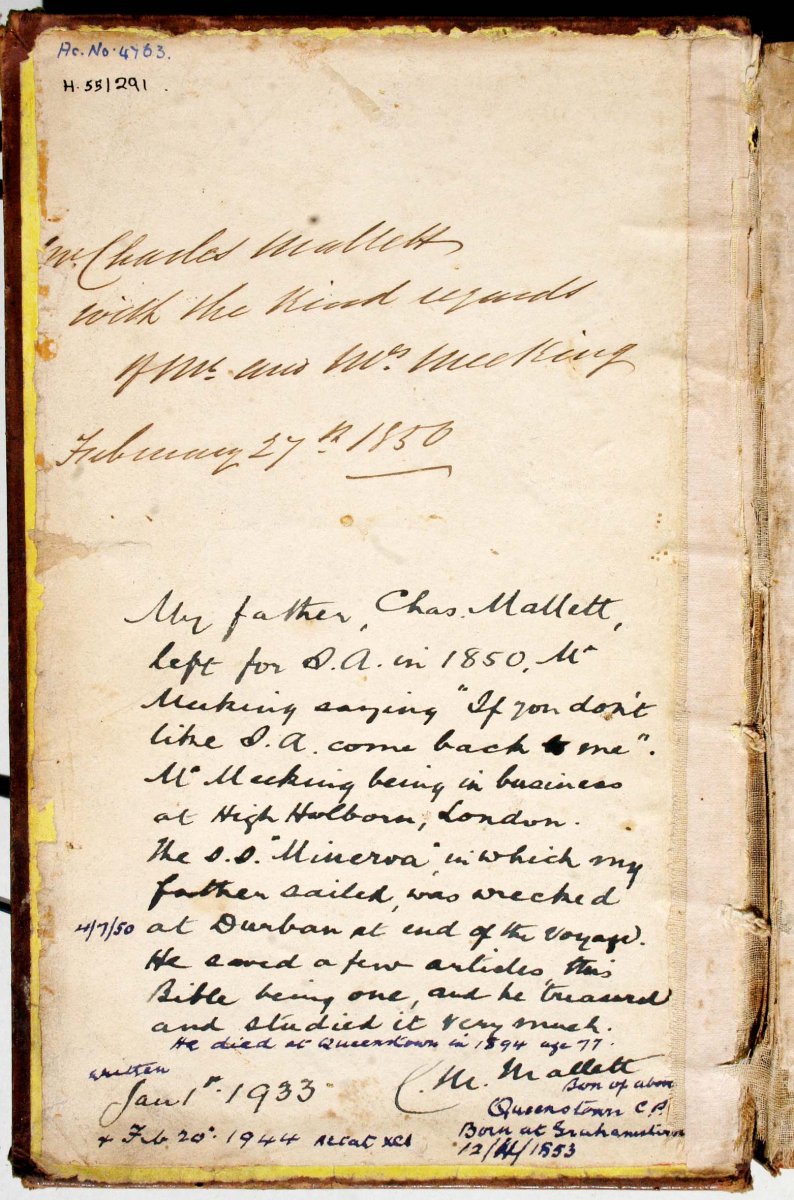 Ac. No. 4763.
H. 55/291.
Mr. Charles Mallett
with the Kind regards
of Mr. and Mrs Meeking
February 27th 1850
My father, Chas. Mallett,
left for S.A. in 1850, Mr
Meeking saying "If you don't
like S.A. come back to me".
Mr Meeking being in business
at High Holborn, London.
The S.S. "Minerva", in which my
father sailed, was wrecked
4/7/50 at Durban at end of the voyage.
He saved a few articles, this
Bible being one, and he treasured
and studied it very much.
He died at Queenstown in 1894 age 77.
written
Jan 1st. 1933
C. M. Mallett
Son of above
Queenstown C.P.
Born at Grahamstown
12/4/1853
+ Feb 20th. 1944 Aetat xci